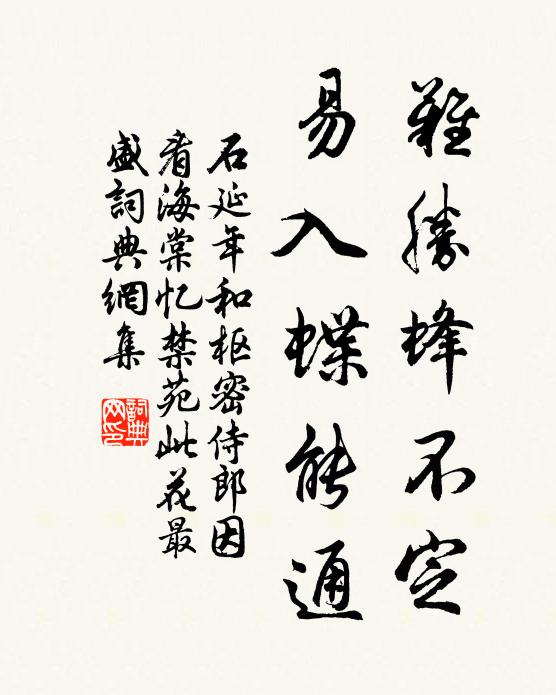 難勝蜂不定
易入蝶能通
石延年和枢密侍郎因
看海棠忆禁苑此花最
盛詞典網集
詞典
网印